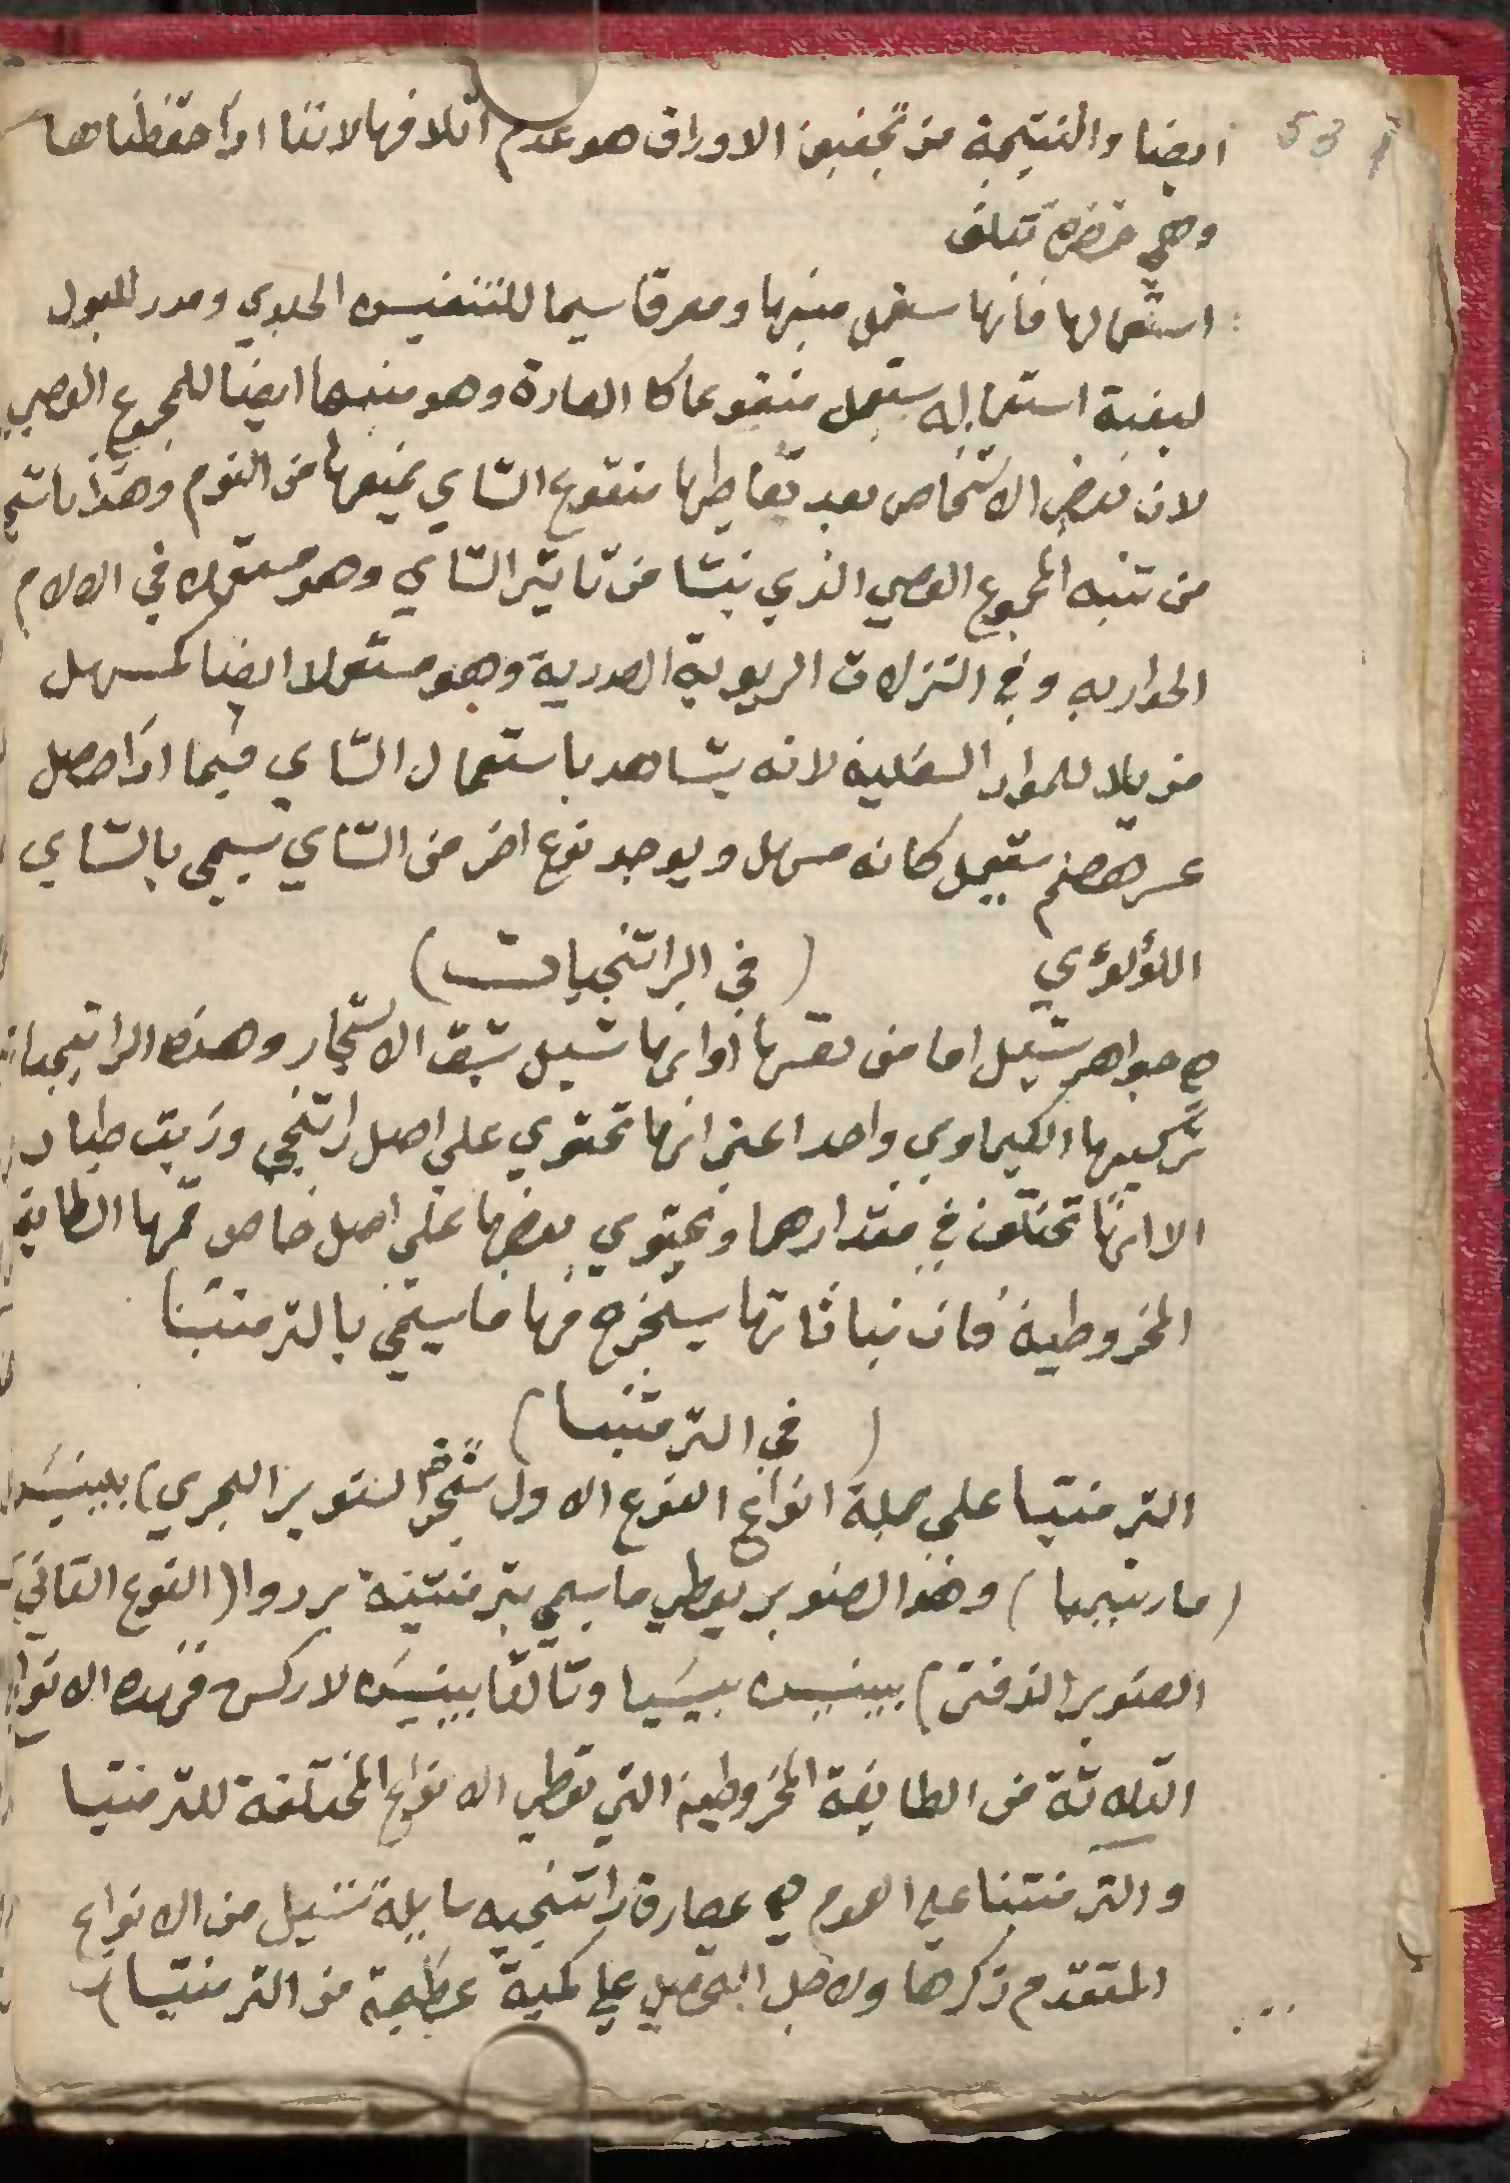 53
ايضا والنتيجة من تجفيف الاوراق هو عدم اتلافها لاننا اذا حفظناها
وهي خضره تتلف
استعمالها فانها ستعمل منبها ومعرقا سيما للتنفيس الجلدي ومدر للبول
لبغية استعماله يستعمل منقوعا كا العادة وهو منبها ايضا للمجموع العصبي
لان بعض الاشخاص بعد تعاطيها منقوع الشاي يمنعها من النوم وهذا ناتج
من تنبه المجموع العصبي الذي ينشا من تاثير الشاي وهو مستعملا في الالام
الحواريه وفي النزلات الريوية الصدرية وهو مستعملا ايضا كمسهل
مزيلا للمواد السفلية لانه يشاهد باستعمال الشاي فيما اذا حصل
عسر هضم ستعمل كانه مسهل ويوجد نوع اخر من الشاي يسمي بالشاي
اللؤلؤي (في الراتنجيات)
هي جواهر تسيل اما من نفسها اوانها تسيل بشق الاشجار وهذه الراتنجيات
تركيبها الكيماوي واحد اعني انها تحتوي علي اصل راتنجي وزيت طيار
الا انها تختلف في مقدارهما وتحتوي بعضها علي اصل خاص فمنها الطايفة
المخروطية فان نباتاتها يستخرج منها ما يسمي بالترمنتينا
(في الترمنتينا)
الترمنتينا علي جملة انواع النوع الاول شجر الصنوبر البحري) بيينيس
(مارتيما) وهذا الصنوبر يعطي ما يسمي بترمنتينة بردوا (النوع الثاني
الصنوبر الزفتي) بيينيس بيسيا وثالثا بيينيس لاركس فهذه الانواع
الثلاثة من الطايفة المخروطية التي تعطي الانواع المختلفة للترمنتينا
والترمنتينا علي العموم هي عصارة راتنجيه سايلة تسيل من الانواع
المتقدم ذكرها ولاجل التحصيل علي كمية عظيمة من الترمنتينا)